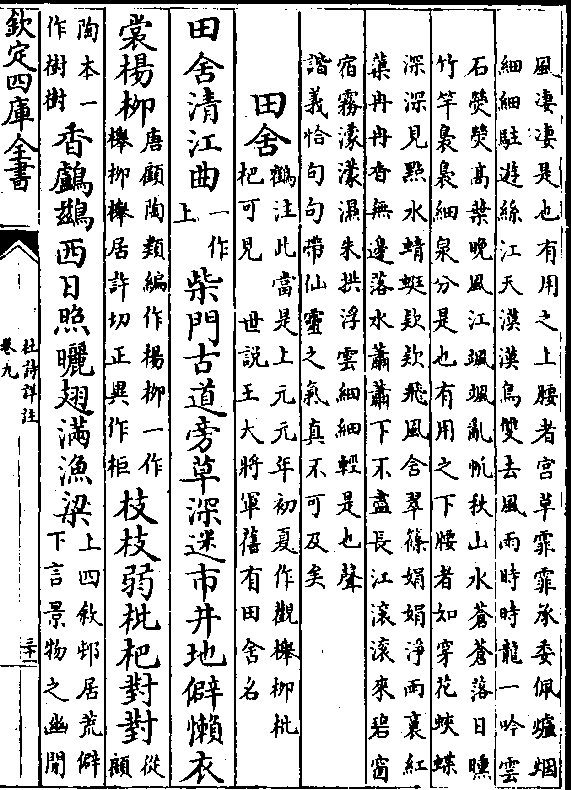 風淒淒是也有用之上腰者宮草霏霏承委佩爐烟
細細駐遊絲江天漠漠鳥雙去風雨時時龍一吟雲
石熒熒髙葉晚風江颯颯亂帆秋山水蒼蒼落日曛
竹竿裊裊細泉分是也有用之下腰者如穿花蛺蝶
深深見㸃水蜻蜓欵欵飛風含翠篠娟娟淨雨裛紅
蕖冉冉香無邊落水蕭蕭下不盡長江滾滾來碧窗
宿霧濛濛濕朱拱浮雲細細輕是也聲
諧義恰句句帶仙靈之氣真不可及矣
田舍
鶴注此當是上元元年初夏作觀櫸柳枇
杷可見 世說王大將軍舊有田舍名
田舍清江曲一作上柴門古道旁草深迷市井地僻懶衣
裳楊柳唐顧陶類編作楊柳一作櫸柳櫸居許切正異作柜枝枝弱枇杷對對從顧
陶本一作樹樹香鸕鷀西日照曬翅滿漁梁上四敘邨居荒僻下言景物之幽閒
欽定四庫全書
杜詩詳注
卷九